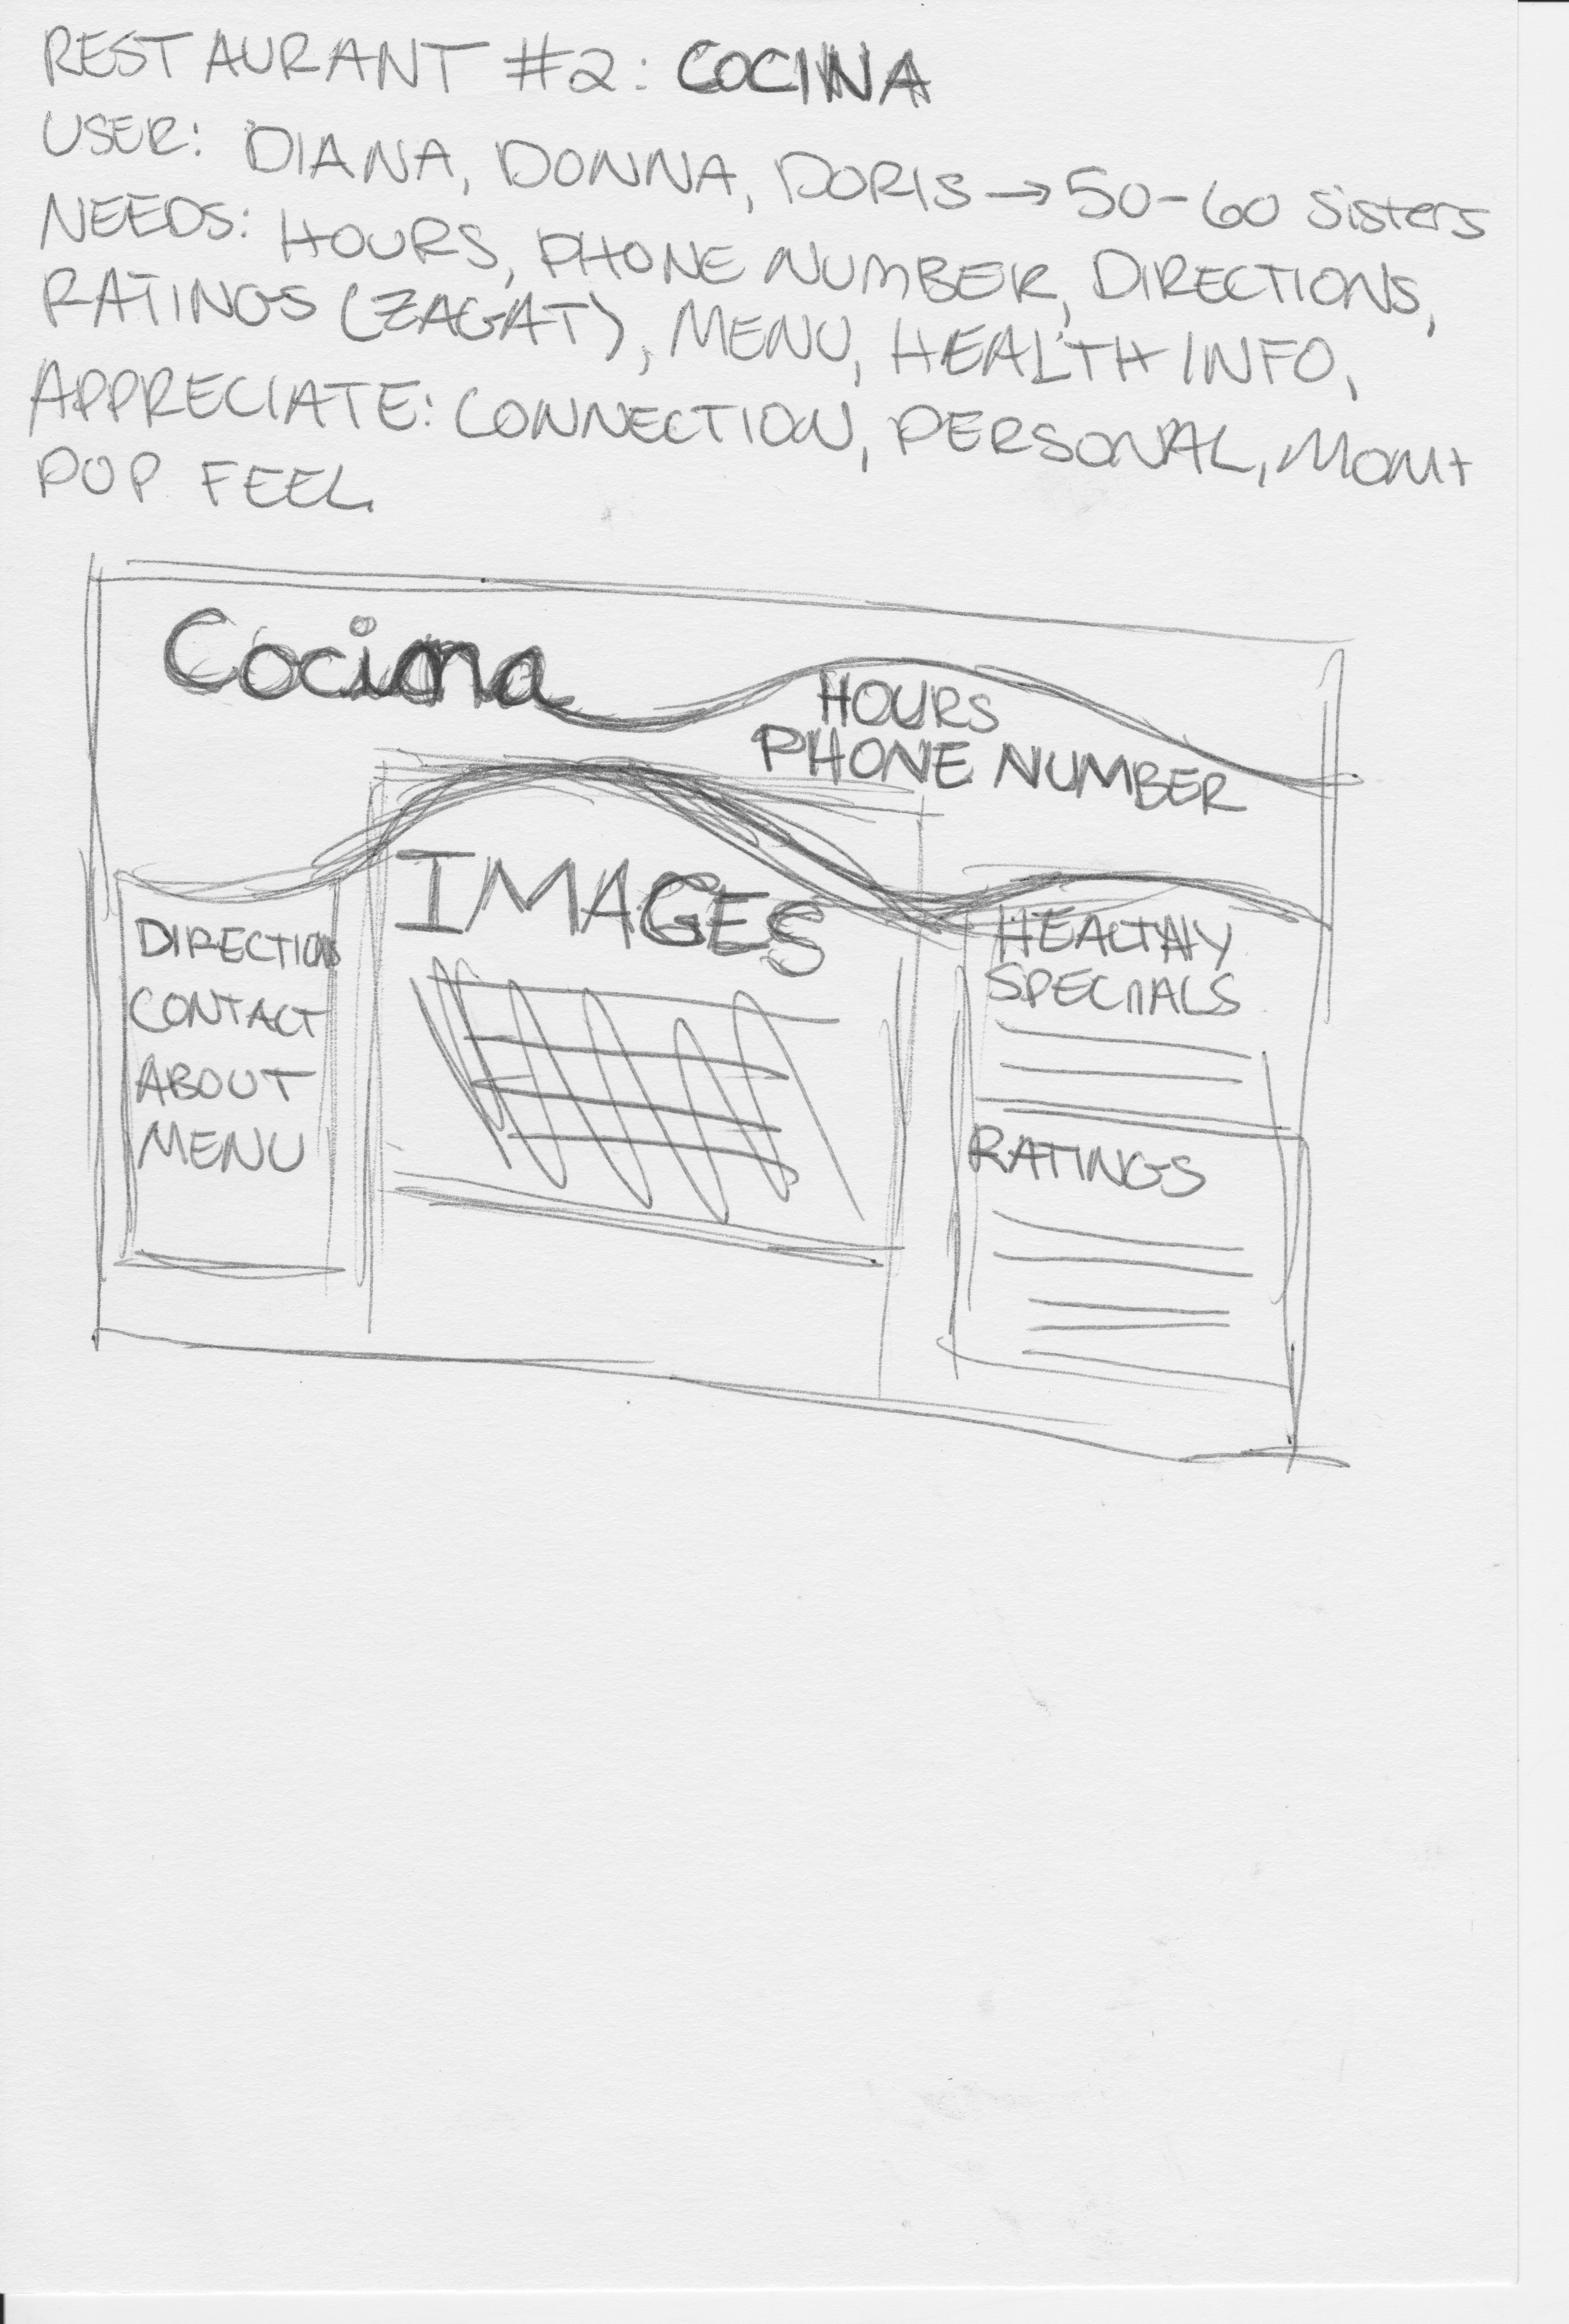 RESTAURANT #2: COCINA
USER: DIANA, DONNA, DORIS → 50-60 sisters
NEEDS: HOURS, PHONE NUMBER, DIRECTIONS,
RATINGS (ZAGAT), MENU, HEALTH INFO,
APPRECIATE: CONNECTION, PERSONAL, MOM +
POP FEEL.
Cocina
HOURS
PHONE NUMBER
IMAGES
DIRECTIONS
CONTACT
ABOUT
MENU
HEALTHY
SPECIALS
RATINGS